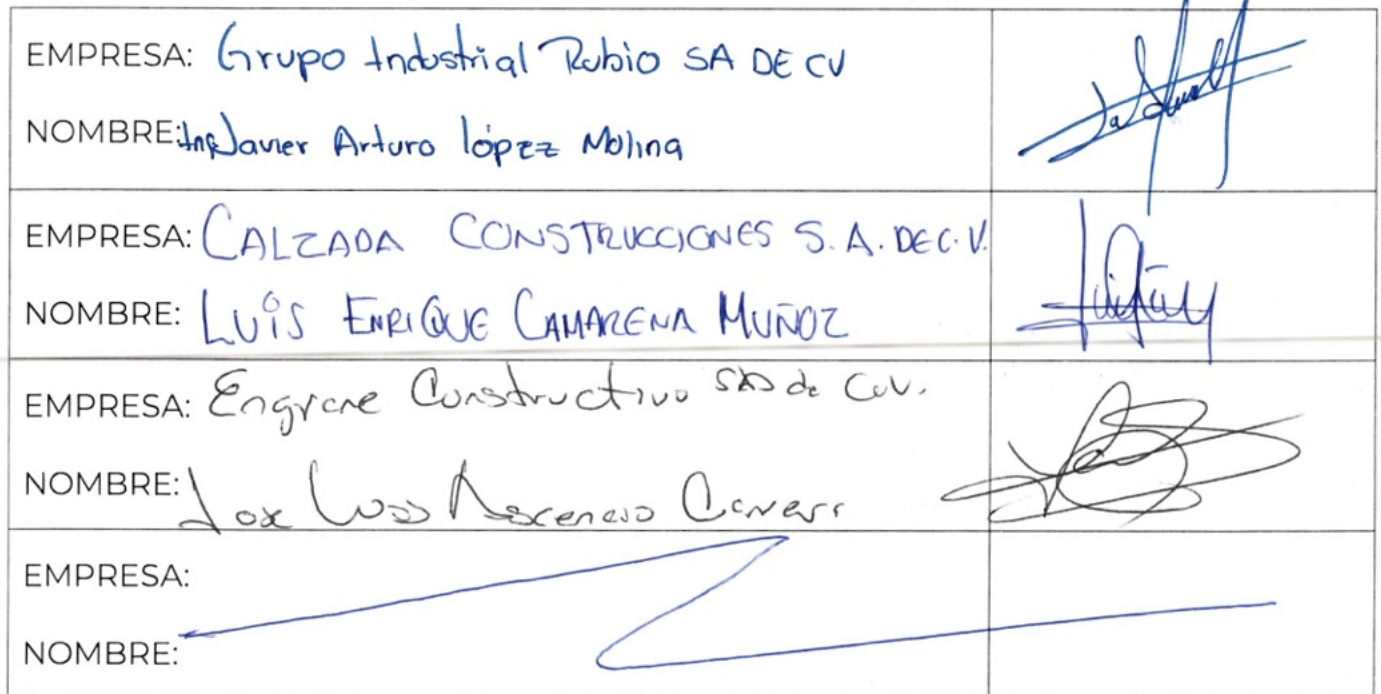 EMPRESA: Grupo Industrial Rubio SA DE CV
NOMBRE: Ing Javier Arturo López Molina
EMPRESA: CALZADA CONSTRUCCIONES S.A. DE C.V.
NOMBRE: LUIS ENRIQUE CAMARENA MUÑOZ
EMPRESA: Engrane Constructivo SA de C.V.
NOMBRE: Jose Luis Ascencio
EMPRESA:
NOMBRE: